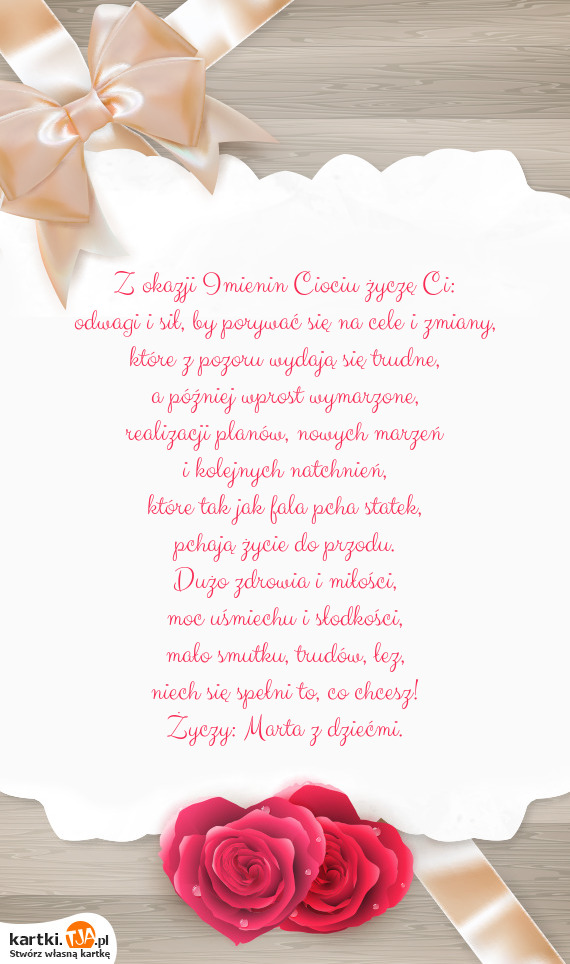 Z okazji Imienin Ciociu życzę Ci:
odwagi i sił, by porywać się na cele i zmiany,
które z pozoru wydają się trudne,
a później wprost wymarzone,
realizacji planów, nowych marzeń
i kolejnych natchnień,
które tak jak fala pcha statek,
pchają życie do przodu.
Dużo zdrowia i miłości,
moc uśmiechu i słodkości,
mało smutku, trudów, łez,
niech się spełni to, co chcesz!
Życzy: Marta z dziećmi.
kartki.TJA.pl
Stwórz własną kartkę